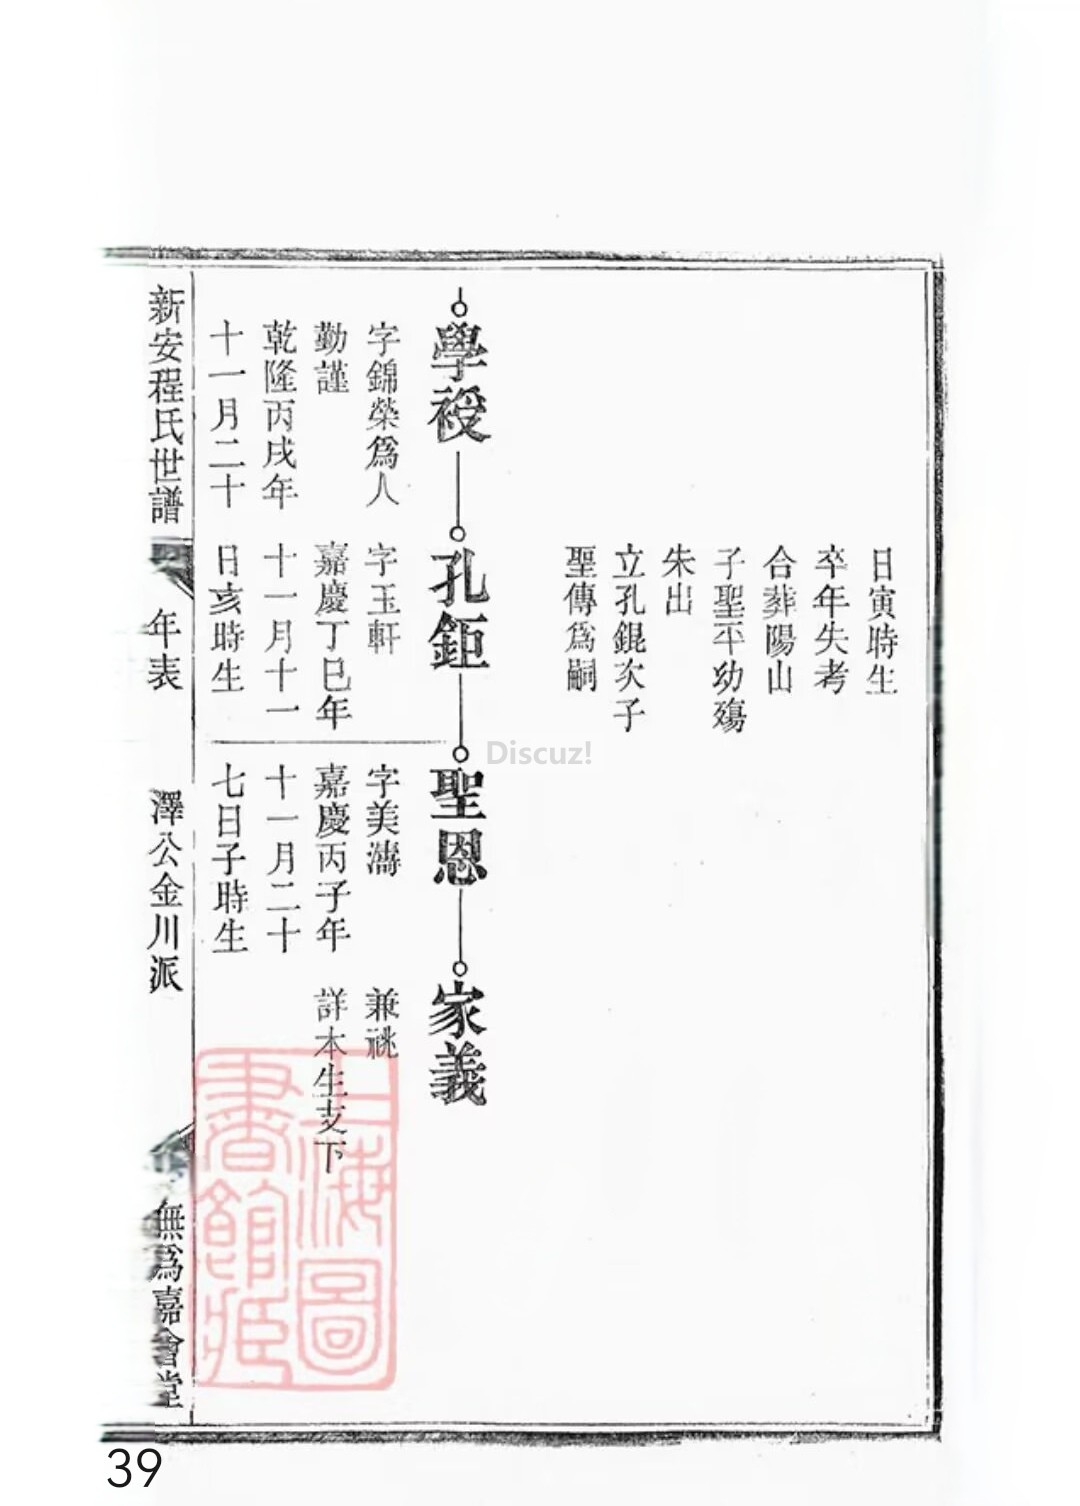 日寅時生
卒年失考
合葬陽山
子聖平幼殤
朱出
立孔錕次子
聖傳爲嗣
學授
字錦榮爲人
勤謹
乾隆丙戌年
十一月二十
孔鉅
字玉軒
嘉慶丁巳年
十一月十一
日亥時生
聖恩
字美濤
嘉慶丙子年
十一月二十
七日子時生
家義
兼祧
詳本生支下
新安程氏世譜
年表
澤公金川派
無爲嘉會堂
上海圖
書館藏
Discuz!
39